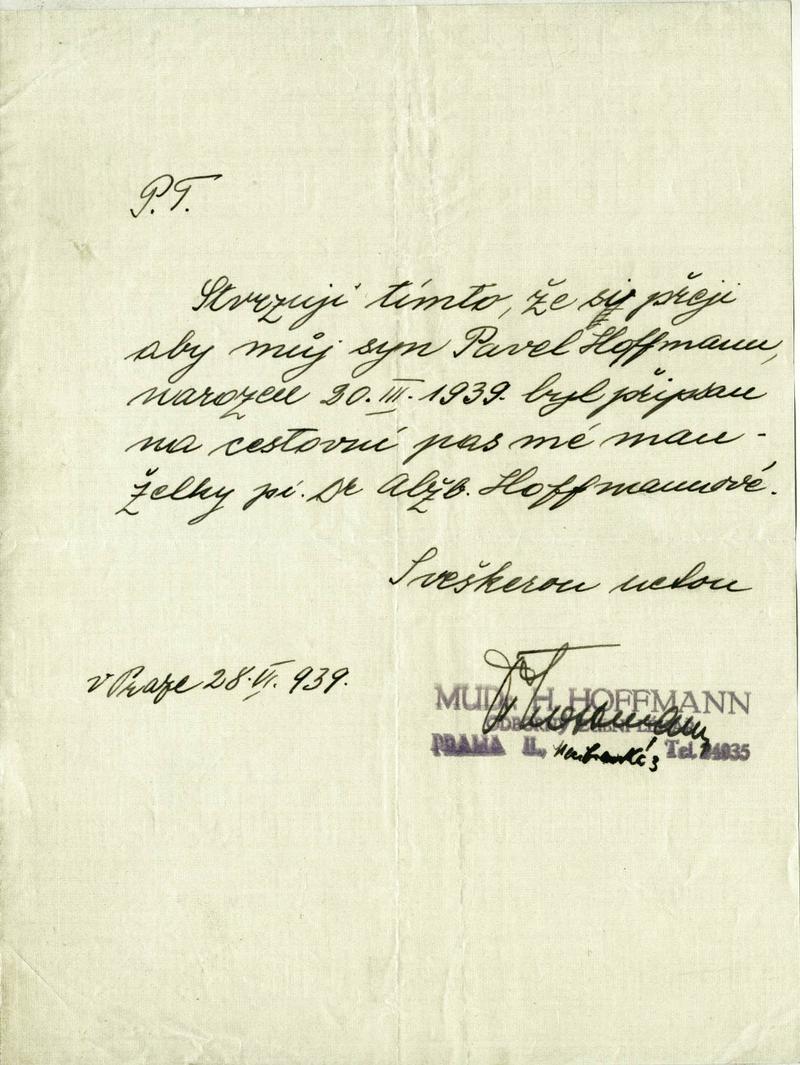 P.T.
Stvrzuji tímto, že si přeji
aby můj syn Pavel Hoffmann,
narozen 20.III.1939. byl připsán
na cestovní pas mé man-
želky pí. Dr Alžb. Hoffmannové.
S veškerou úctou
v Praze 28.VI.939.
MUDr. H. HOFFMANN
PRAHA II., Tel.